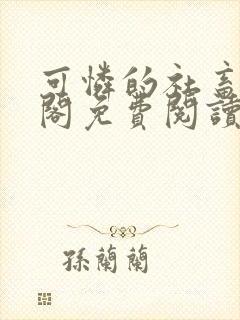 可憐的社畜
閣免費閱讀
孫蘭蘭